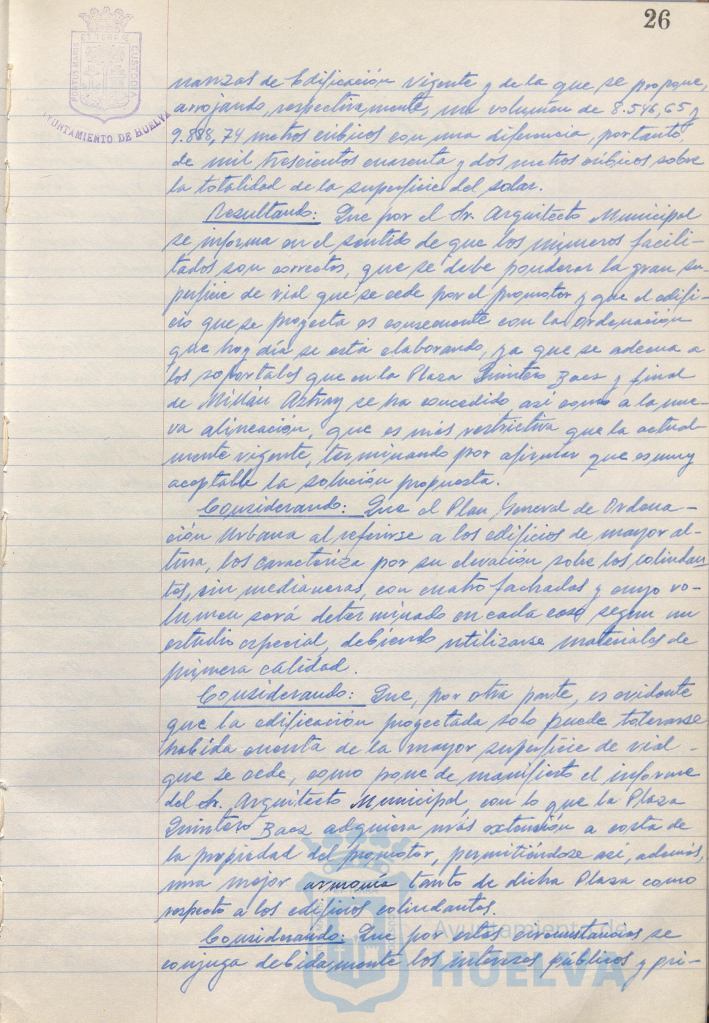 26
PORTUS MARIS ET TERRE CUSTODIA
AYUNTAMIENTO DE HUELVA
nanzas de Edificación vigente y de la que se propone,
arrojando, respectivamente, un volumen de 8.546,65 y
9.888,74 metros cúbicos con una diferencia, por tanto,
de mil trescientos cuarenta y dos metros cúbicos sobre
la totalidad de la superficie del solar.
Resultando: Que por el Sr. Arquitecto Municipal
se informa en el sentido de que los números facili-
tados son correctos, que se debe ponderar la gran su-
perficie de vial que se cede por el promotor y que el edifi-
cio que se proyecta es consecuente con la ordenación
que hoy día se está elaborando, ya que se adecua a
los soportales que en la Plaza Quintero Baez y final
de Millán Astray se ha concedido así como a la nue-
va alineación, que es más restrictiva que la actual-
mente vigente, terminando por afirmar que es muy
aceptable la solución propuesta.
Considerando: Que el Plan General de Ordena-
ción Urbana al referirse a los edificios de mayor al-
tura, los caracteriza por su elevación sobre los colindan
tes, sin medianeras, con cuatro fachadas y cuyo vo-
lumen será determinado en cada caso segun un
estudio especial, debiendo utilizarse materiales de
primera calidad.
Considerando: Que, por otra parte, es evidente
que la edificación proyectada solo puede tolerarse
habida cuenta de la mayor superficie de vial
que se cede, como pone de manifiesto el informe
del Sr. Arquitecto Municipal, con lo que la Plaza
Quintero Baez adquiera más extensión a costa de
la propiedad del promotor, permitiéndose así, además,
una mejor armonía tanto de dicha Plaza como
respecto a los edificios colindantes.
Considerando: Que por estas circunstancias se
conjuga debidamente los intereses públicos y pri-
Ayuntamiento de
HUELVA